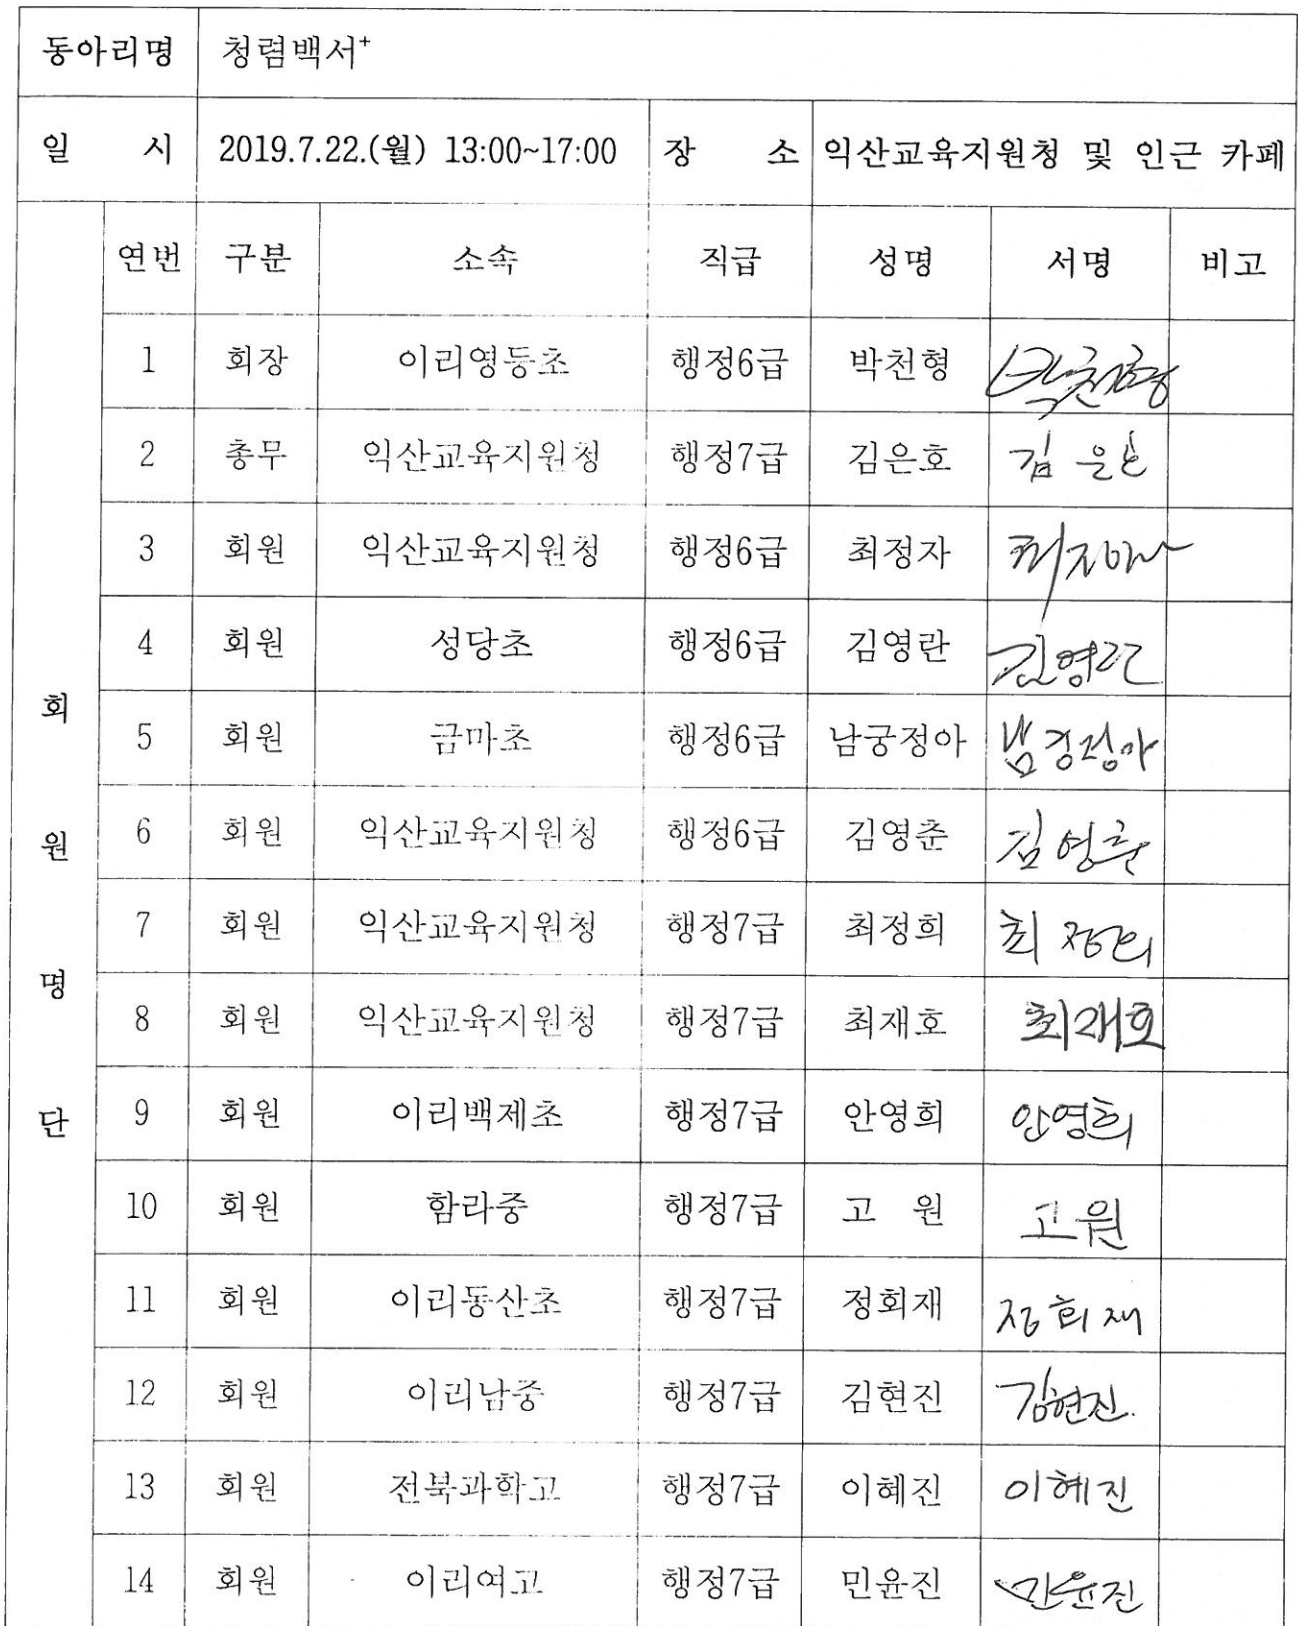 동아리명 청렴백서+
일 시 2019.7.22.(월) 13:00~17:00 장 소 익산교육지원청 및 인근 카페
회원명단
연번 구분 소속 직급 성명 서명 비고
1 회장 이리영등초 행정6급 박천형 박천형
2 총무 익산교육지원청 행정7급 김은호 김은호
3 회원 익산교육지원청 행정6급 최정자
4 회원 성당초 행정6급 김영란 김영란
5 회원 금마초 행정6급 남궁정아 남궁정아
6 회원 익산교육지원청 행정6급 김영춘 김영춘
7 회원 익산교육지원청 행정7급 최정희 최정희
8 회원 익산교육지원청 행정7급 최재호 최재호
9 회원 이리백제초 행정7급 안영희 안영희
10 회원 함라중 행정7급 고 원 고원
11 회원 이리동산초 행정7급 정회재 정회재
12 회원 이리남중 행정7급 김현진 김현진
13 회원 전북과학고 행정7급 이혜진 이혜진
14 회원 이리여고 행정7급 민윤진 민윤진